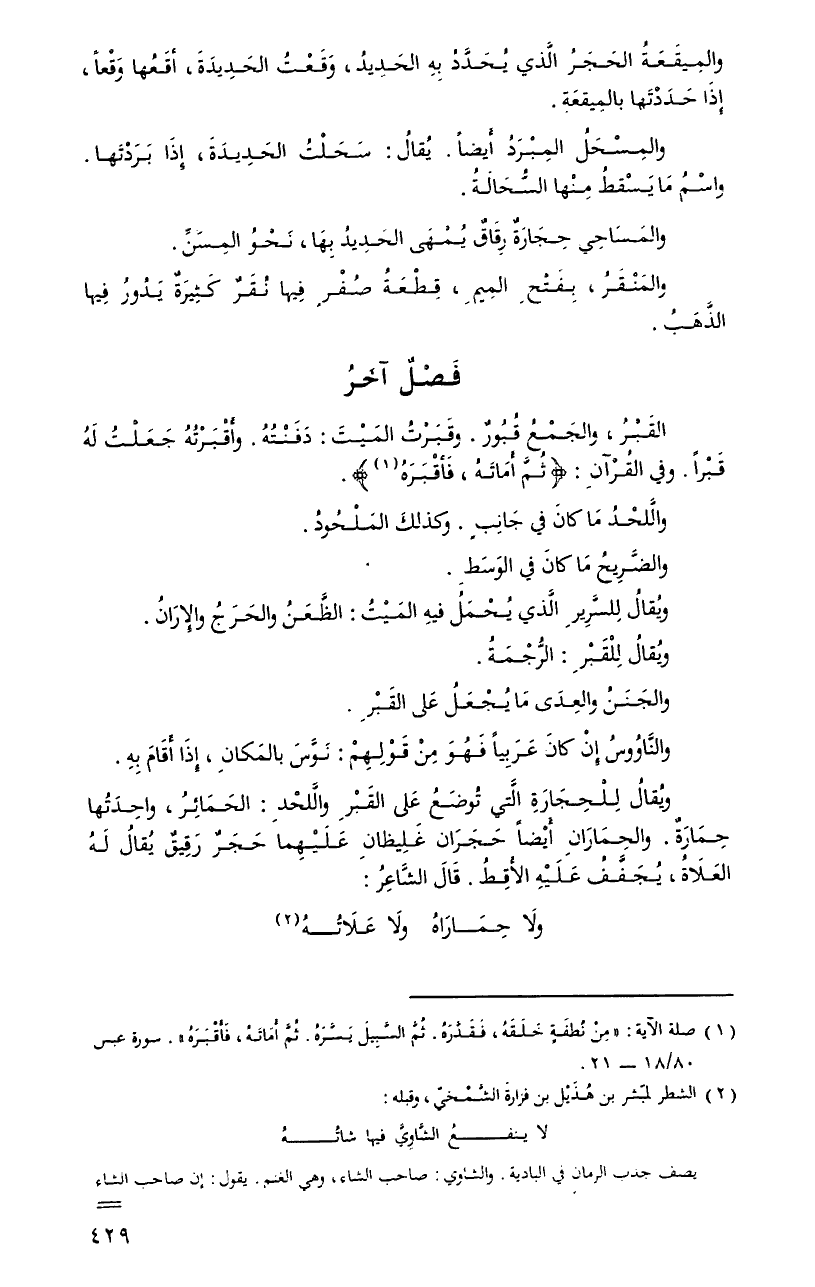 والمِيقَعَةُ الحَجَرُ الَّذي يُحَدَّدُ بِهِ الحَديدُ ، وَقَعْتُ الحَدِيدَةَ ، أقَعُها وَقْعاً ،
إِذَا حَدَدْتَها بالمِيقعَةِ .
والمِسْحَلُ المِبْرَدُ أيضاً . يُقالُ : سَحَلْتُ الحَدِيدَةَ ، إِذَا بَرَدْتَها .
واسْمُ مَا يَسْقطُ مِنْها السُّحَالَةُ .
والمَسَاحِي حِجَارَةٌ رِقَاقٌ يُمْهَى الحَديدُ بِهَا ، نَحْوُ المِسَنِّ .
والمَنْقَرُ ، بِفَتْحِ المِيمِ ، قِطْعَةُ صُفْرٍ فِيها نُقَرٌ كَثِيرَةٌ يَدُورُ فِيها
الذَّهَبُ .
فَصْلٌ آخَرُ
القَبْرُ ، والجَمْعُ قُبُورٌ . وقَبَرْتُ المَيْتَ : دَفَنْتُهُ . وأَقْبَرْتُهُ جَعَلْتُ لَهُ
قَبْراً . وفي القُرْآنِ : ﴿ ثُمَّ أَمَاتَهُ ، فَأَقْبَرَهُ(١) ﴾ .
واللَّحْدُ مَا كانَ في جَانِبٍ . وكذلكَ المَلْحُودُ .
والضَّرِيحُ مَا كانَ في الوَسَطِ .
ويُقالُ لِلسَّرِيرِ الَّذي يُحْمَلُ فيهِ المَيْتُ : الظَّعَنُ والحَرَجُ والإِرَانُ .
ويُقالُ لِلْقَبْرِ : الرُّجْمَةُ .
والجَنَنُ والعِدَى مَا يُجْعَلُ عَلى القَبْرِ .
والنَّاؤوسُ إِنْ كانَ عَرَبِياً فَهُوَ مِنْ قَوْلِهِمْ : نَوَّسَ بالمَكانِ ، إِذَا أَقَامَ بِهِ .
ويُقالُ لِلْحِجَارَةِ الَّتي تُوضَعُ عَلى القَبْرِ واللَّحْدِ : الحَمَائِرُ ، واحِدَتُها
حِمَارَةٌ . والحِمارَانِ أَيْضاً حَجَرَانِ غَلِيظانِ عَلَيْهِما حَجَرٌ رَقِيقٌ يُقالُ لَهُ
العَلَاةُ ، يُجَفَّفُ عَلَيْهِ الأَقِطُ . قَالَ الشَّاعِرُ :
ولَا حِمَــارَاهُ ولَا عَلَاتُــهُ(٢)
(١) صلة الآية : «مِنْ نُطفَةٍ خَلَقَهُ ، فَقَدَّرَهُ . ثُمَّ السَّبِيلَ يَسَّرَهُ . ثُمَّ أَمَاتَهُ ، فَأَقْبَرَهُ» . سورة عبس
١٨/٨٠ – ٢١ .
(٢) الشطر لمبشر بن هُذَيْل بن فزارة الشَّمْخيّ ، وقبله :
لا ينفــعُ الشَّاوِيَّ فيها شاتُــهُ
يصف جدب الزمان في البادية . والشاوي : صاحب الشاء ، وهي الغنم . يقول : إن صاحب الشاء
=
٤٢٩